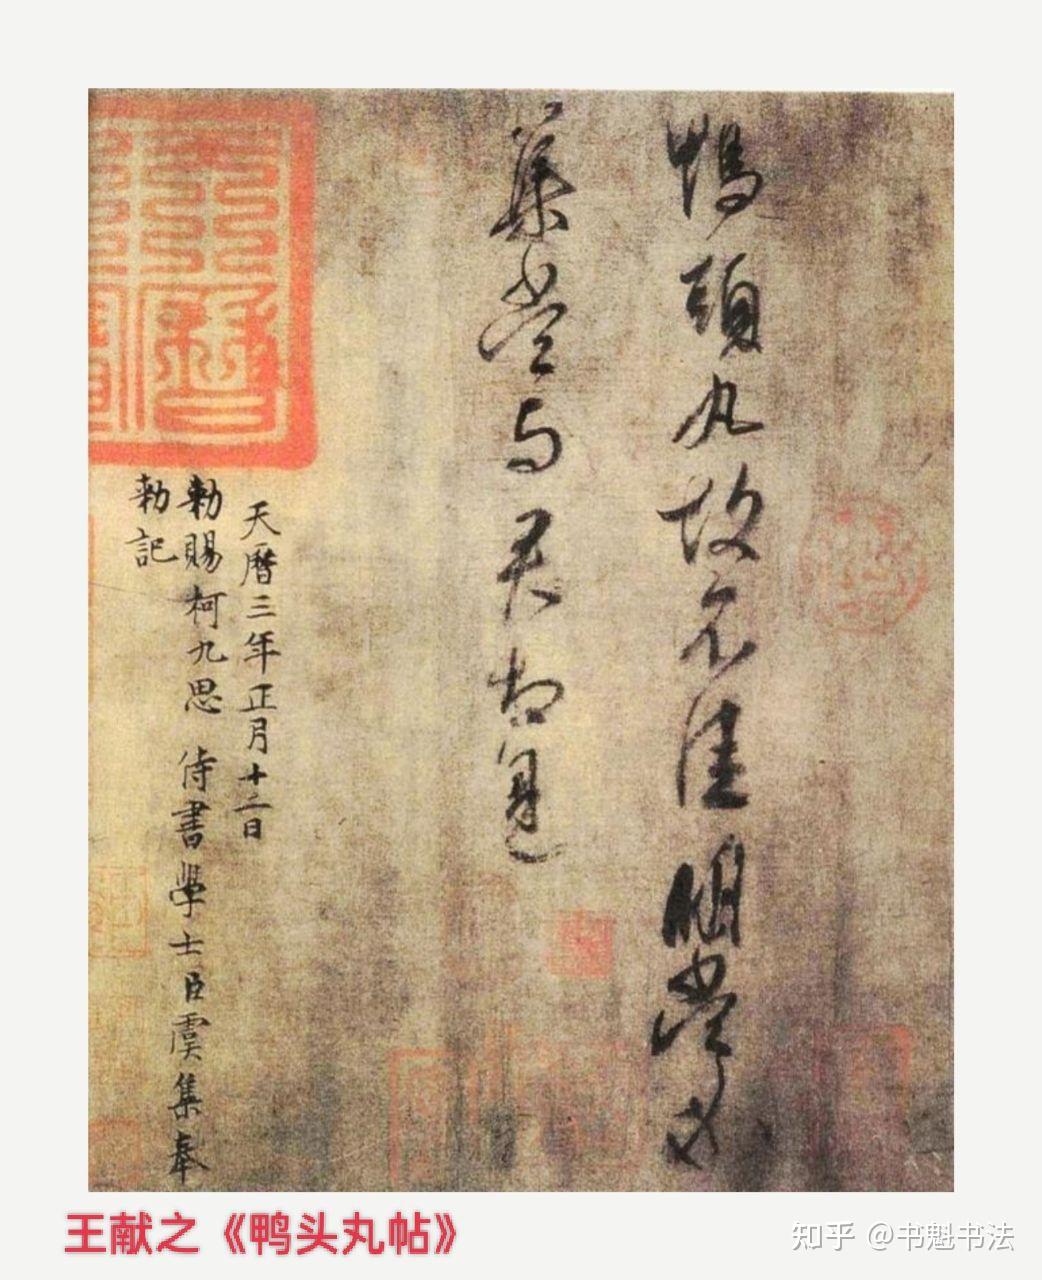 鴨頭丸故不佳明當必
集當与君相見
天曆三年正月十二日
勑賜柯九思 侍書學士臣虞集奉
勑記
天曆
王献之《鸭头丸帖》
知乎 @书魁书法